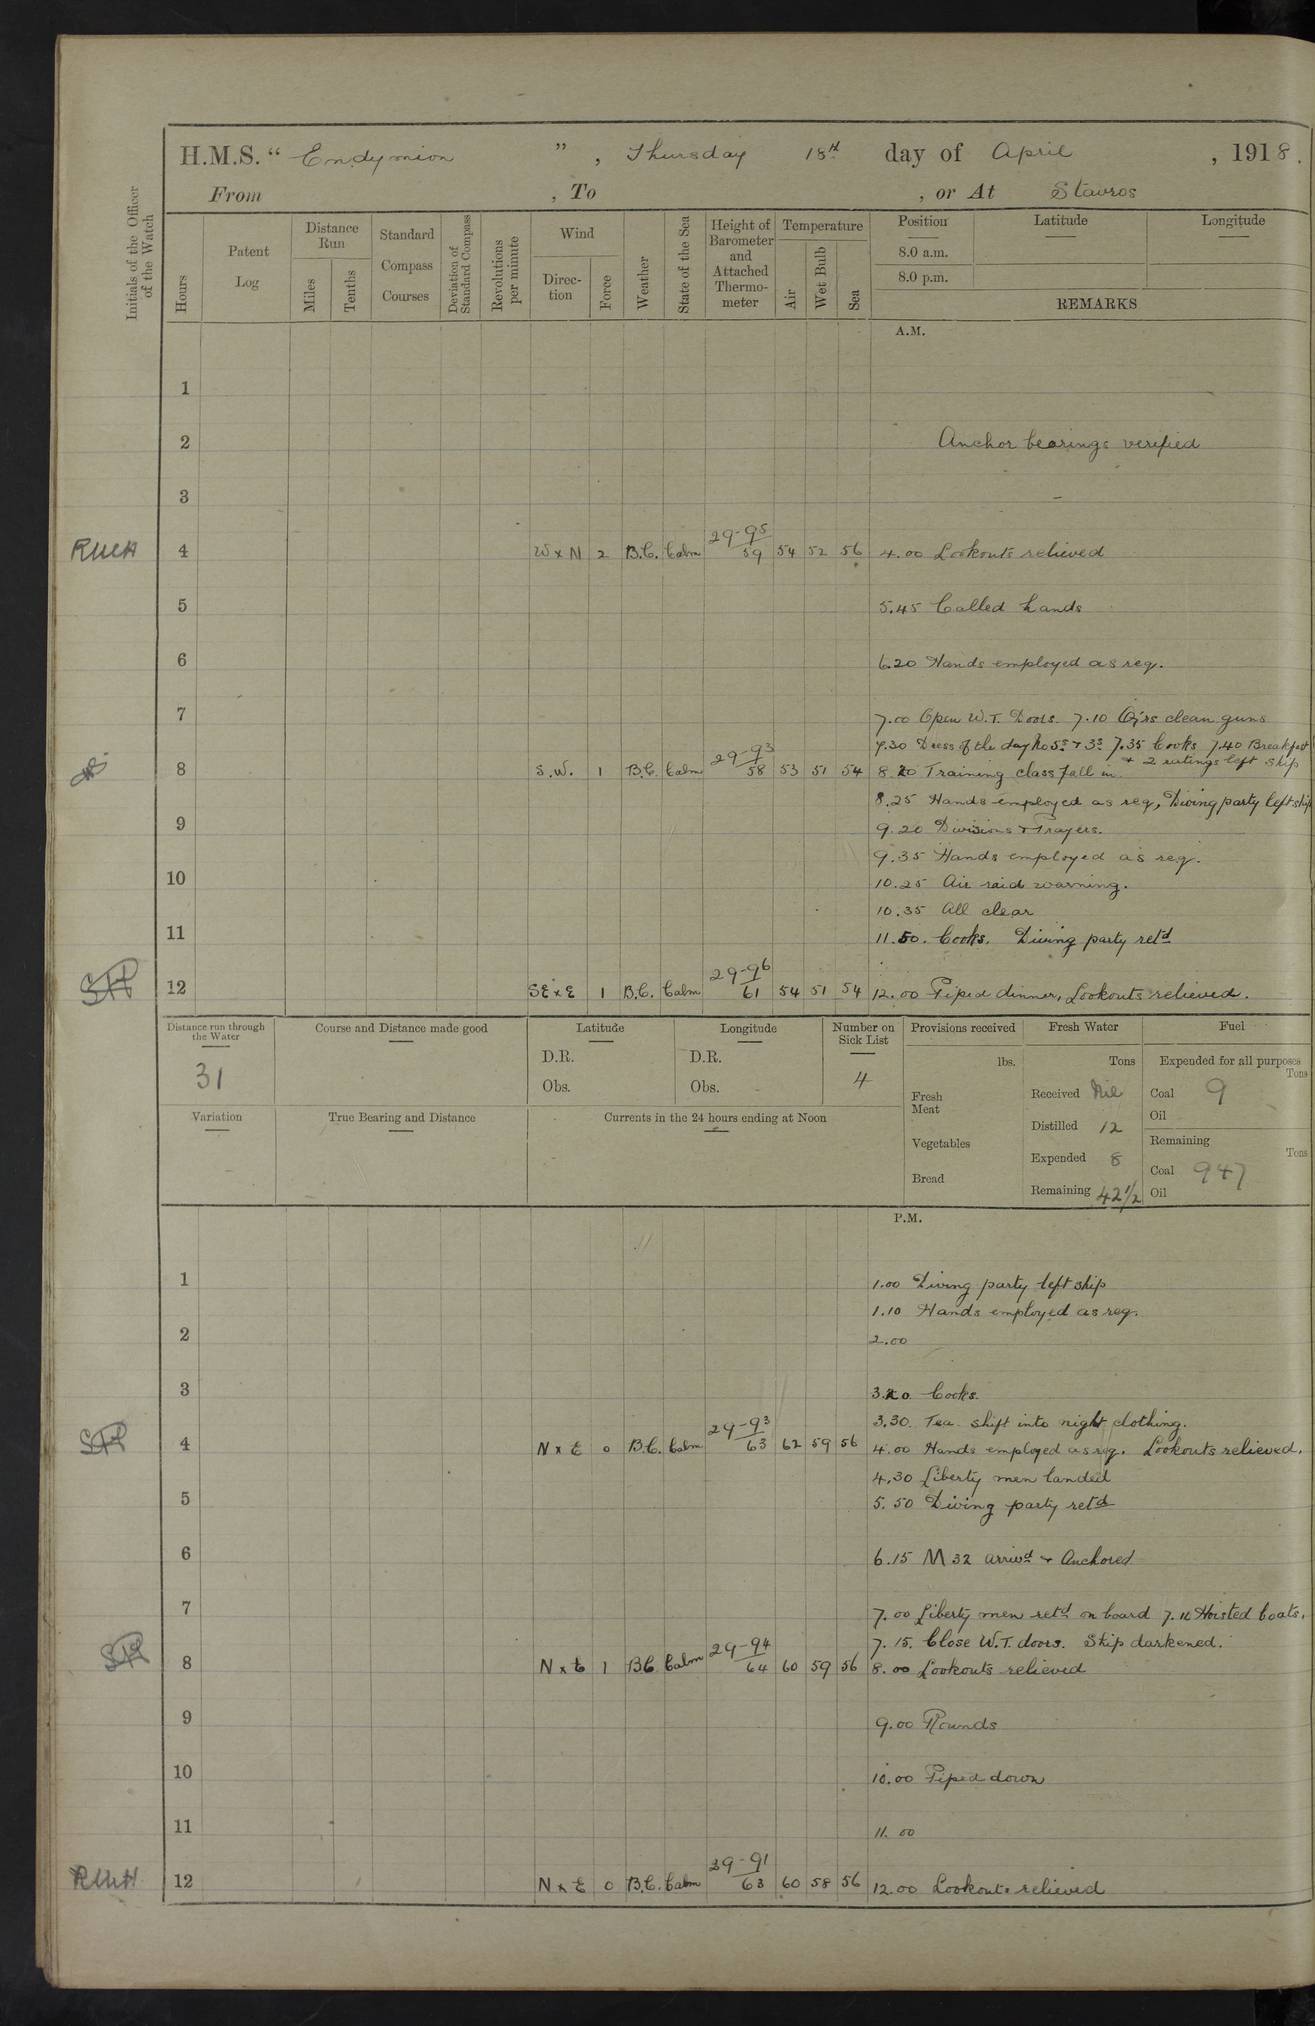 H.M.S. " Endymion " , Thursday 18th day of April , 1918.
From , To , or At Stavros
Initials of the Officer of the Watch
Hours
Patent Log
Distance Run
Miles
Tenths
Standard Compass Courses
Deviation of Standard Compass
Revolutions per minute
Wind
Direction
Force
Weather
State of the Sea
Height of Barometer and Attached Thermometer
Temperature
Air
Wet Bulb
Sea
Position
Latitude
Longitude
8.0 a.m.
8.0 p.m.
REMARKS
A.M.
1
2 Anchor bearings verified
3
4 W x N 2 B.C. Calm 29-95/59 54 52 56 4.00 Lookouts relieved
5 5.45 Called hands
6 6.20 Hands employed as req.
7 7.00 Open W.T. Doors 7.10 Qrs clean guns
7.30 Dress of the day No 5s & 3s 7.35 Cooks 7.40 Breakfast
& 2 ratings left ship
8 S.W. 1 B.C. Calm 29-93/58 53 51 54 8.20 Training class fall in
8.25 Hands employed as req, Diving party left ship
9 9.20 Divisions & Prayers.
9.35 Hands employed as req.
10 10.25 Air raid warning.
10.35 All clear
11 11.50. Cooks. Diving party retd
12 SE x E 1 B.C. Calm 29-96/61 54 51 54 12.00 Piped dinner, Lookouts relieved.
Distance run through the Water
31
Course and Distance made good
Latitude
D.R.
Obs.
Longitude
D.R.
Obs.
Number on Sick List
4
Variation
True Bearing and Distance
Currents in the 24 hours ending at Noon
Provisions received
lbs.
Fresh Meat
Vegetables
Bread
Fresh Water
Tons
Received Nil
Distilled 12
Expended 8
Remaining 42 1/2
Fuel
Expended for all purposes
Tons
Coal 9
Oil
Remaining
Tons
Coal 947
Oil
P.M.
1 1.00 Diving party left ship
1.10 Hands employed as req.
2 2.00
3 3.20 Cooks.
3.30. Tea. shift into night clothing.
4 N x E 0 B.C. Calm 29-93/63 62 59 56 4.00 Hands employed as req. Lookouts relieved.
4.30 Liberty men landed
5 5.50 Diving party retd
6 6.15 M 32 arrivd & Anchored
7 7.00 Liberty men retd on board 7.10 Hoisted boats.
7.15. Close W.T. doors. Ship darkened.
8 N x E 1 B.C. Calm 29-94/64 60 59 56 8.00 Lookouts relieved
9 9.00 Rounds
10 10.00 Piped down
11 11.00
12 N x E 0 B.C. Calm 29-91/63 60 58 56 12.00 Lookouts relieved